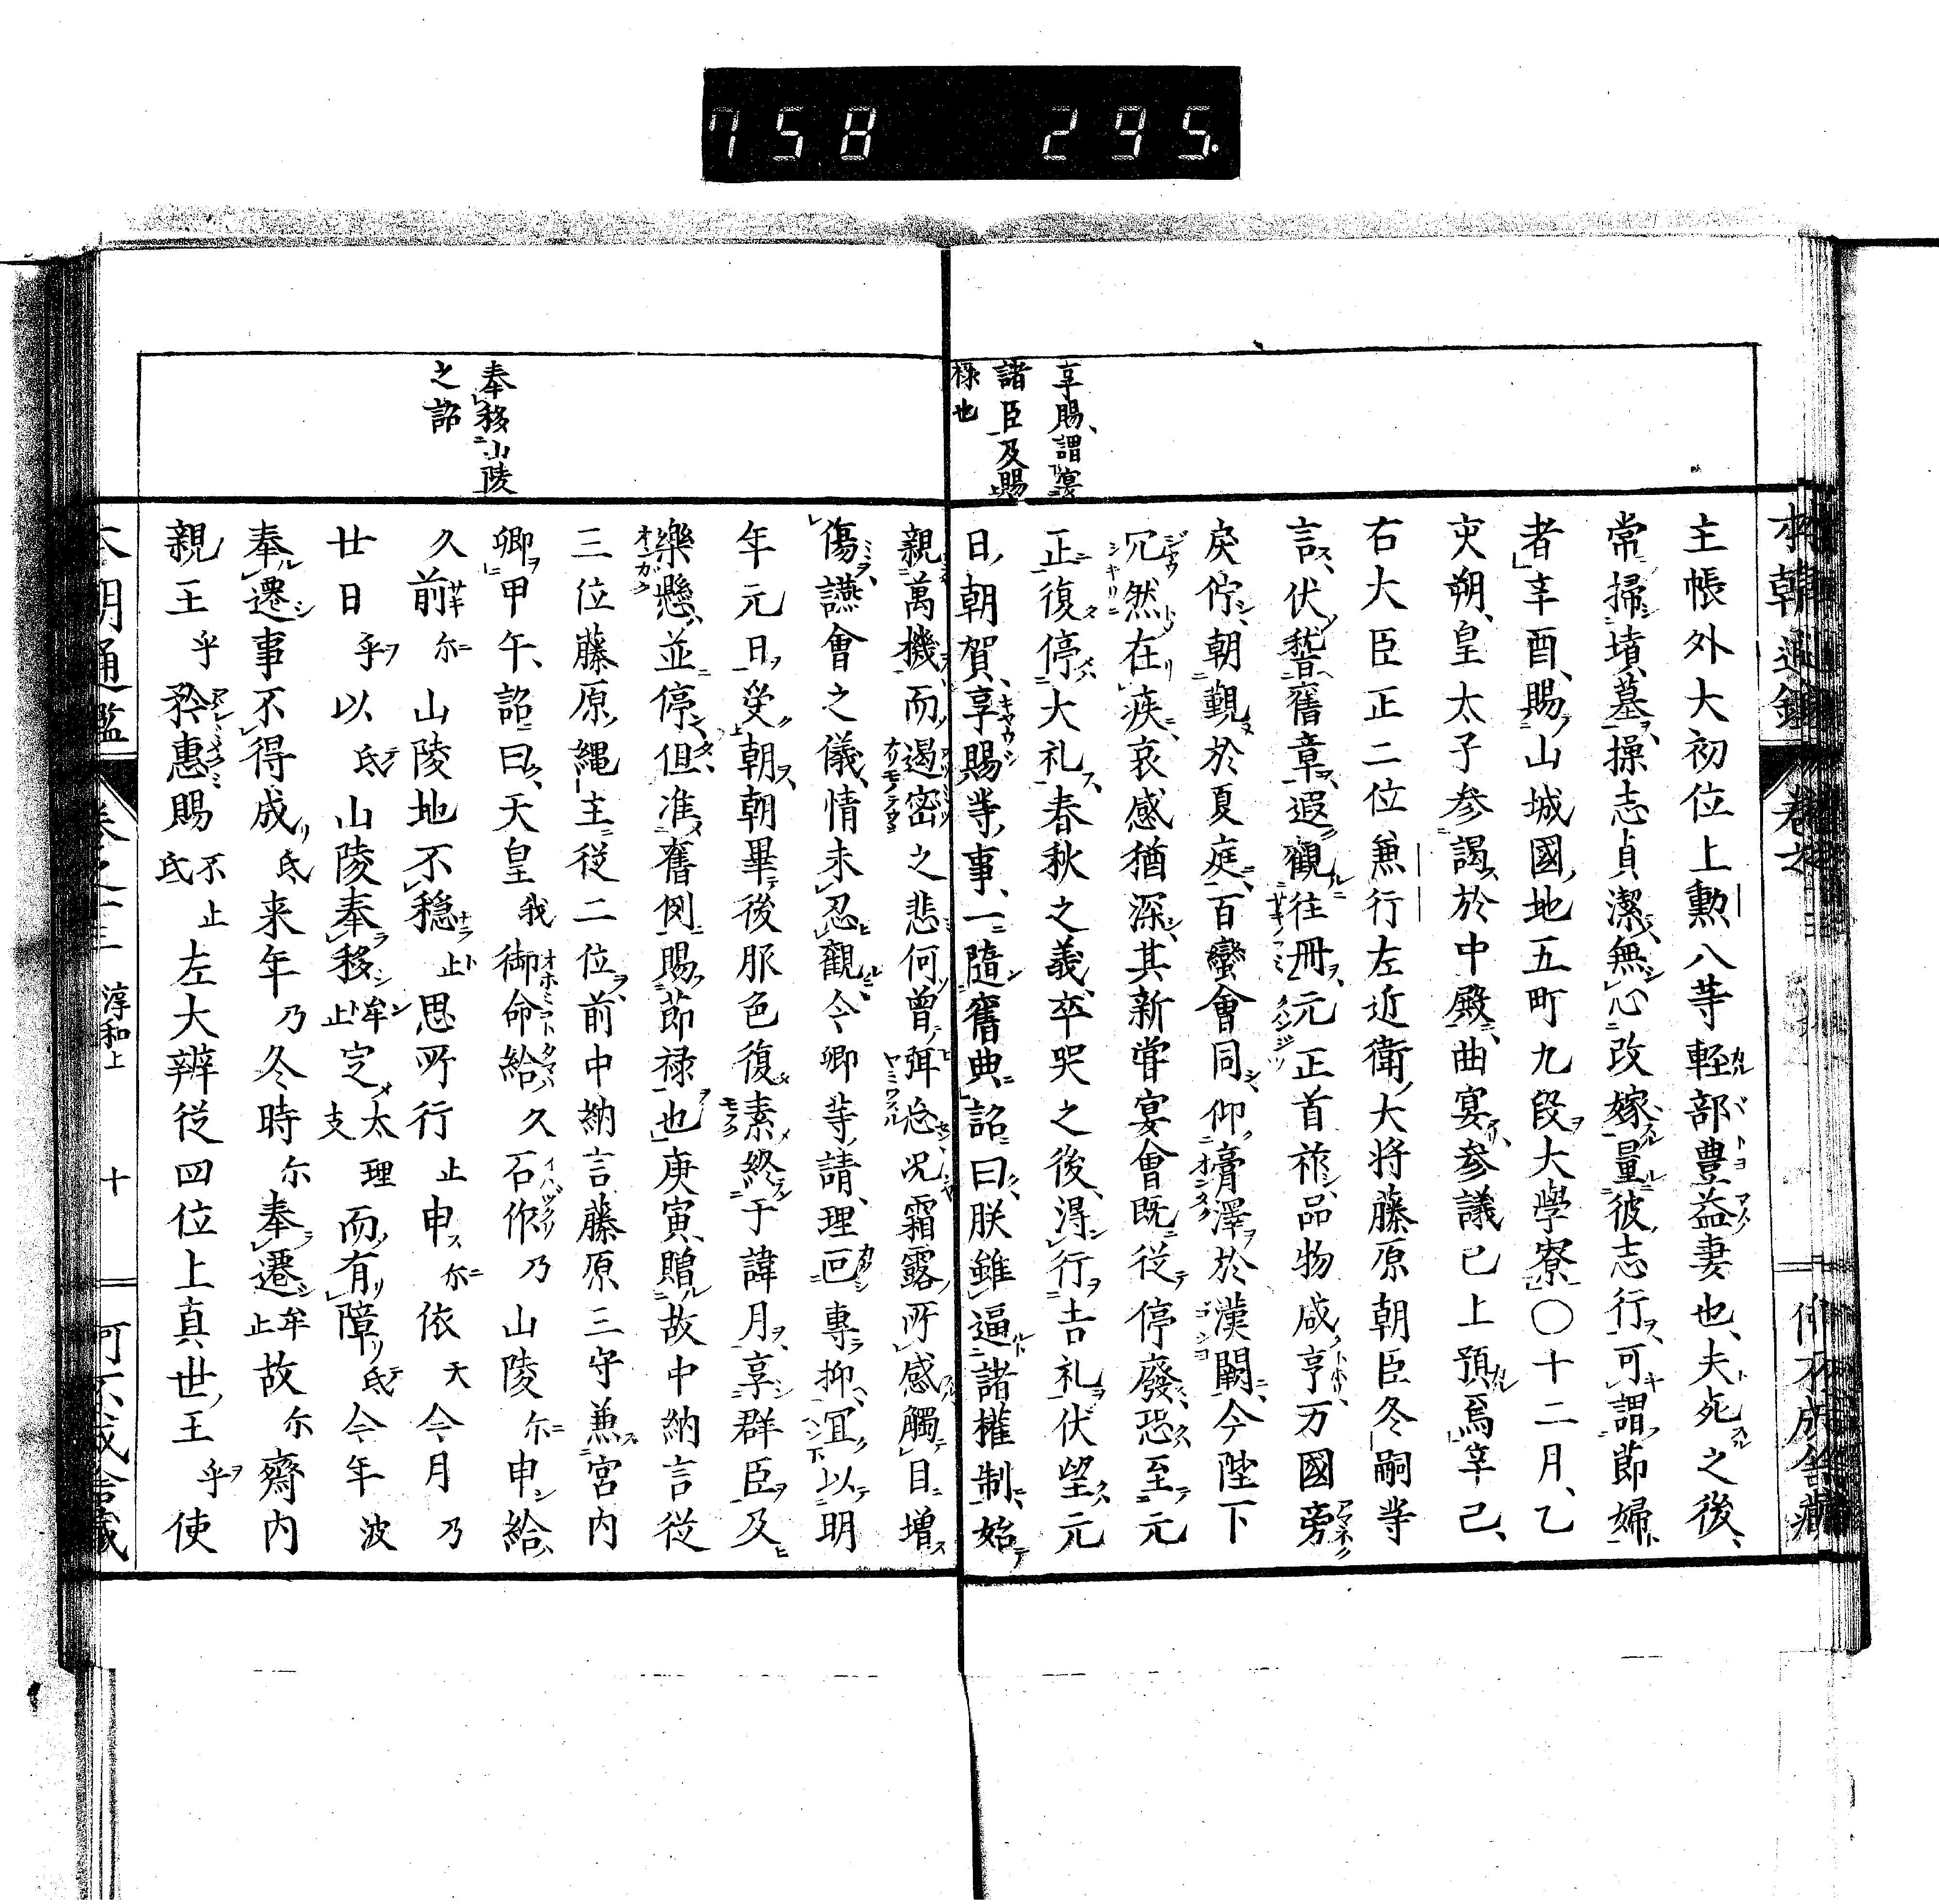 758 295.
享賜、謂宴
諸臣及賜
禄也
主帳外大初位上勲八等軽部豊益妻也、夫死之後、
常掃墳墓、操志貞潔、無心改嫁、量彼志行、可謂節婦
者、辛酉、賜山城國地五町九段大學寮〇十二月、乙
亥朔、皇太子参謁於中殿、曲宴、参議已上預焉、辛巳、
右大臣正二位兼行左近衛大将藤原朝臣冬嗣等
言、伏稽舊章、遐觀往冊、元正首祚、品物咸亨、万國旁
戻佇朝覲於夏庭、百蠻會同、仰膏澤於漢闕、今陛下
冗然在疾、哀感猶深、其新甞宴會既從停廢、恐至元
正復停大礼、春秋之義、卒哭之後、得行吉礼、伏望元
日朝賀、享賜等事、一隨舊典、詔曰、朕雖逼諸權制、始
親萬機、而遏密之悲何曾弭忘、况霜露所感觸目増
傷、讌會之儀、情未忍觀、今卿等請、理叵專抑、宜以明
年元日受朝、朝畢後服色復素終于諱月、享群臣及
樂懸、並停、但准舊例賜節禄也、庚寅、贈故中納言従
三位藤原縄主従二位、前中納言藤原三守兼宮内
卿、甲午、詔曰、天皇我御命給久石作乃山陵尓申給
久前尓山陵地不穏止思所行止申尓依天今月乃
廿日乎以氐山陵奉移牟止定太理支而有障氐今年波
奉遷事不得成氐来年乃冬時尓奉遷牟止故尓齋内
親王乎矜惠賜不止氐左大辨従四位上真世王乎使
奉移山陵
之詔
本朝通鑑 卷之十三 淳和上 十